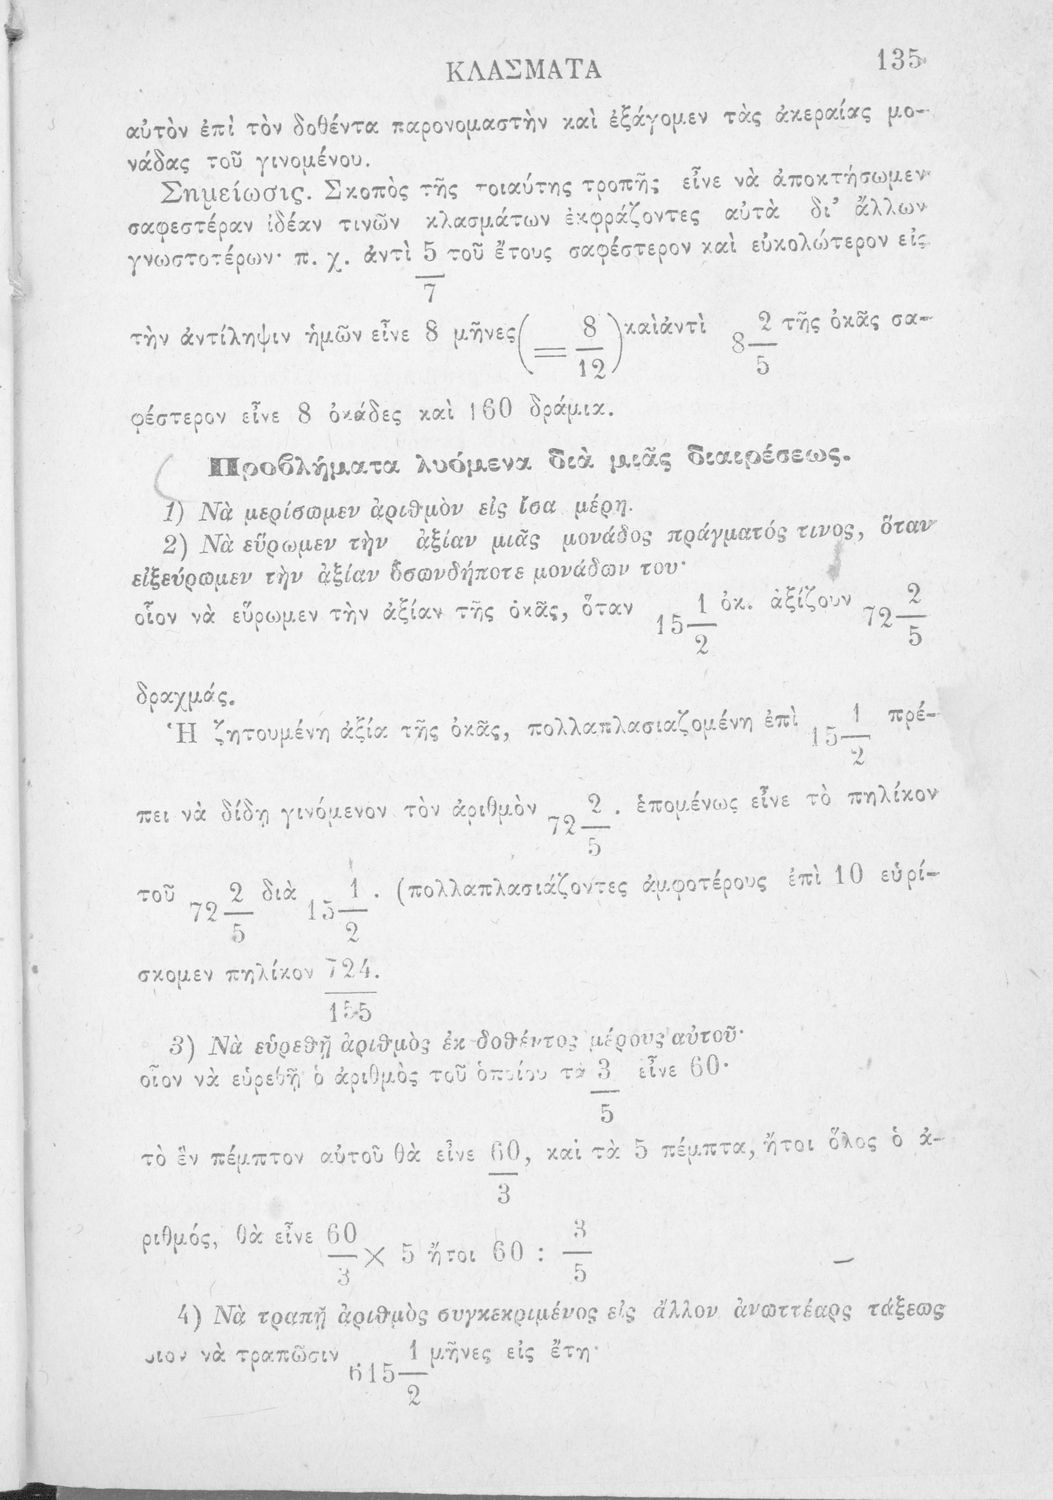 ΚΛΑΣΜΑΤΑ 135
αὐτὸν ἐπὶ τὸν δοθέντα παρονομαστὴν καὶ ἐξάγομεν τὰς ἀκεραίας μο-
νάδας τοῦ γινομένου.
Σημείωσις. Σκοπὸς τῆς τοιαύτης τροπῆς εἶνε νὰ ἀποκτήσωμεν
σαφεστέραν ἰδέαν τινῶν κλασμάτων ἐκφράζοντες αὐτὰ δι’ ἄλλων
γνωστοτέρων· π. χ. ἀντὶ 5/7 τοῦ ἔτους σαφέστερον καὶ εὐκολώτερον εἰς
τὴν ἀντίληψιν ἡμῶν εἶνε 8 μῆνες (= 8/12) καὶ ἀντὶ 8 2/5 τῆς ὀκᾶς σα-
φέστερον εἶνε 8 ὀκάδες καὶ 160 δράμια.
Προβλήματα λυόμενα διὰ μιᾶς διαιρέσεως.
1) Νὰ μερίσωμεν ἀριθμὸν εἰς ἴσα μέρη.
2) Νὰ εὕρωμεν τὴν ἀξίαν μιᾶς μονάδος πράγματός τινος, ὅταν
εἰξεύρωμεν τὴν ἀξίαν ὁσωνδήποτε μονάδων του·
οἷον νὰ εὕρωμεν τὴν ἀξίαν τῆς ὀκᾶς, ὅταν 15 1/2 ὀκ. ἀξίζουν 72 2/5
δραχμάς.
Ἡ ζητουμένη ἀξία τῆς ὀκᾶς, πολλαπλασιαζομένη ἐπὶ 15 1/2 πρέ-
πει νὰ δίδῃ γινόμενον τὸν ἀριθμὸν 72 2/5. ἑπομένως εἶνε τὸ πηλίκον
τοῦ 72 2/5 διὰ 15 1/2. (πολλαπλασιάζοντες ἀμφοτέρους ἐπὶ 10 εὑρί-
σκομεν πηλίκον 724/155.
3) Νὰ εὑρεθῇ ἀριθμὸς ἐκ δοθέντος μέρους αὐτοῦ·
οἷον νὰ εὑρεθῇ ὁ ἀριθμὸς τοῦ ὁποίου τὰ 3/5 εἶνε 60·
τὸ ἓν πέμπτον αὐτοῦ θὰ εἶνε 60/3, καὶ τὰ 5 πέμπτα, ἤτοι ὅλος ὁ ἀ-
ριθμός, θὰ εἶνε 60/3 × 5 ἤτοι 60 : 3/5
4) Νὰ τραπῇ ἀριθμὸς συγκεκριμένος εἰς ἄλλον ἀνωττέαρς τάξεως
οιον νὰ τραπῶσιν 615 1/2 μῆνες εἰς ἔτη·